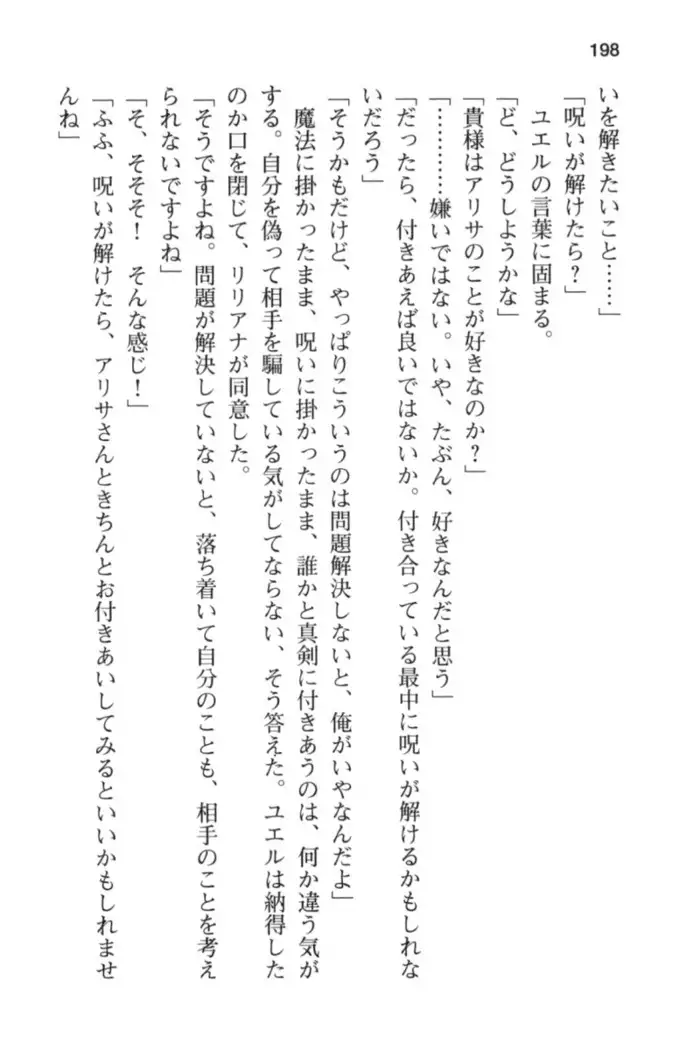 198
いを解きたいこと……」
「呪いが解けたら？」
ユエルの言葉に固まる。
「ど、どうしようかな」
「貴様はアリサのことが好きなのか？」
「…………嫌いではない。いや、たぶん、好きなんだと思う」
「だったら、付きあえば良いではないか。付き合っている最中に呪いが解けるかもしれな
いだろう」
「そうかもだけど、やっぱりこういうのは問題解決しないと、俺がいやなんだよ」
魔法に掛かったまま、呪いに掛かったまま、誰かと真剣に付きあうのは、何か違う気が
する。自分を偽って相手を騙している気がしてならない、そう答えた。ユエルは納得した
のか口を閉じて、リリアナが同意した。
「そうですよね。問題が解決していないと、落ち着いて自分のことも、相手のことを考え
られないですよね」
「そ、そそそ！　そんな感じ！」
「ふふ、呪いが解けたら、アリサさんときちんとお付きあいしてみるといいかもしれませ
んね」